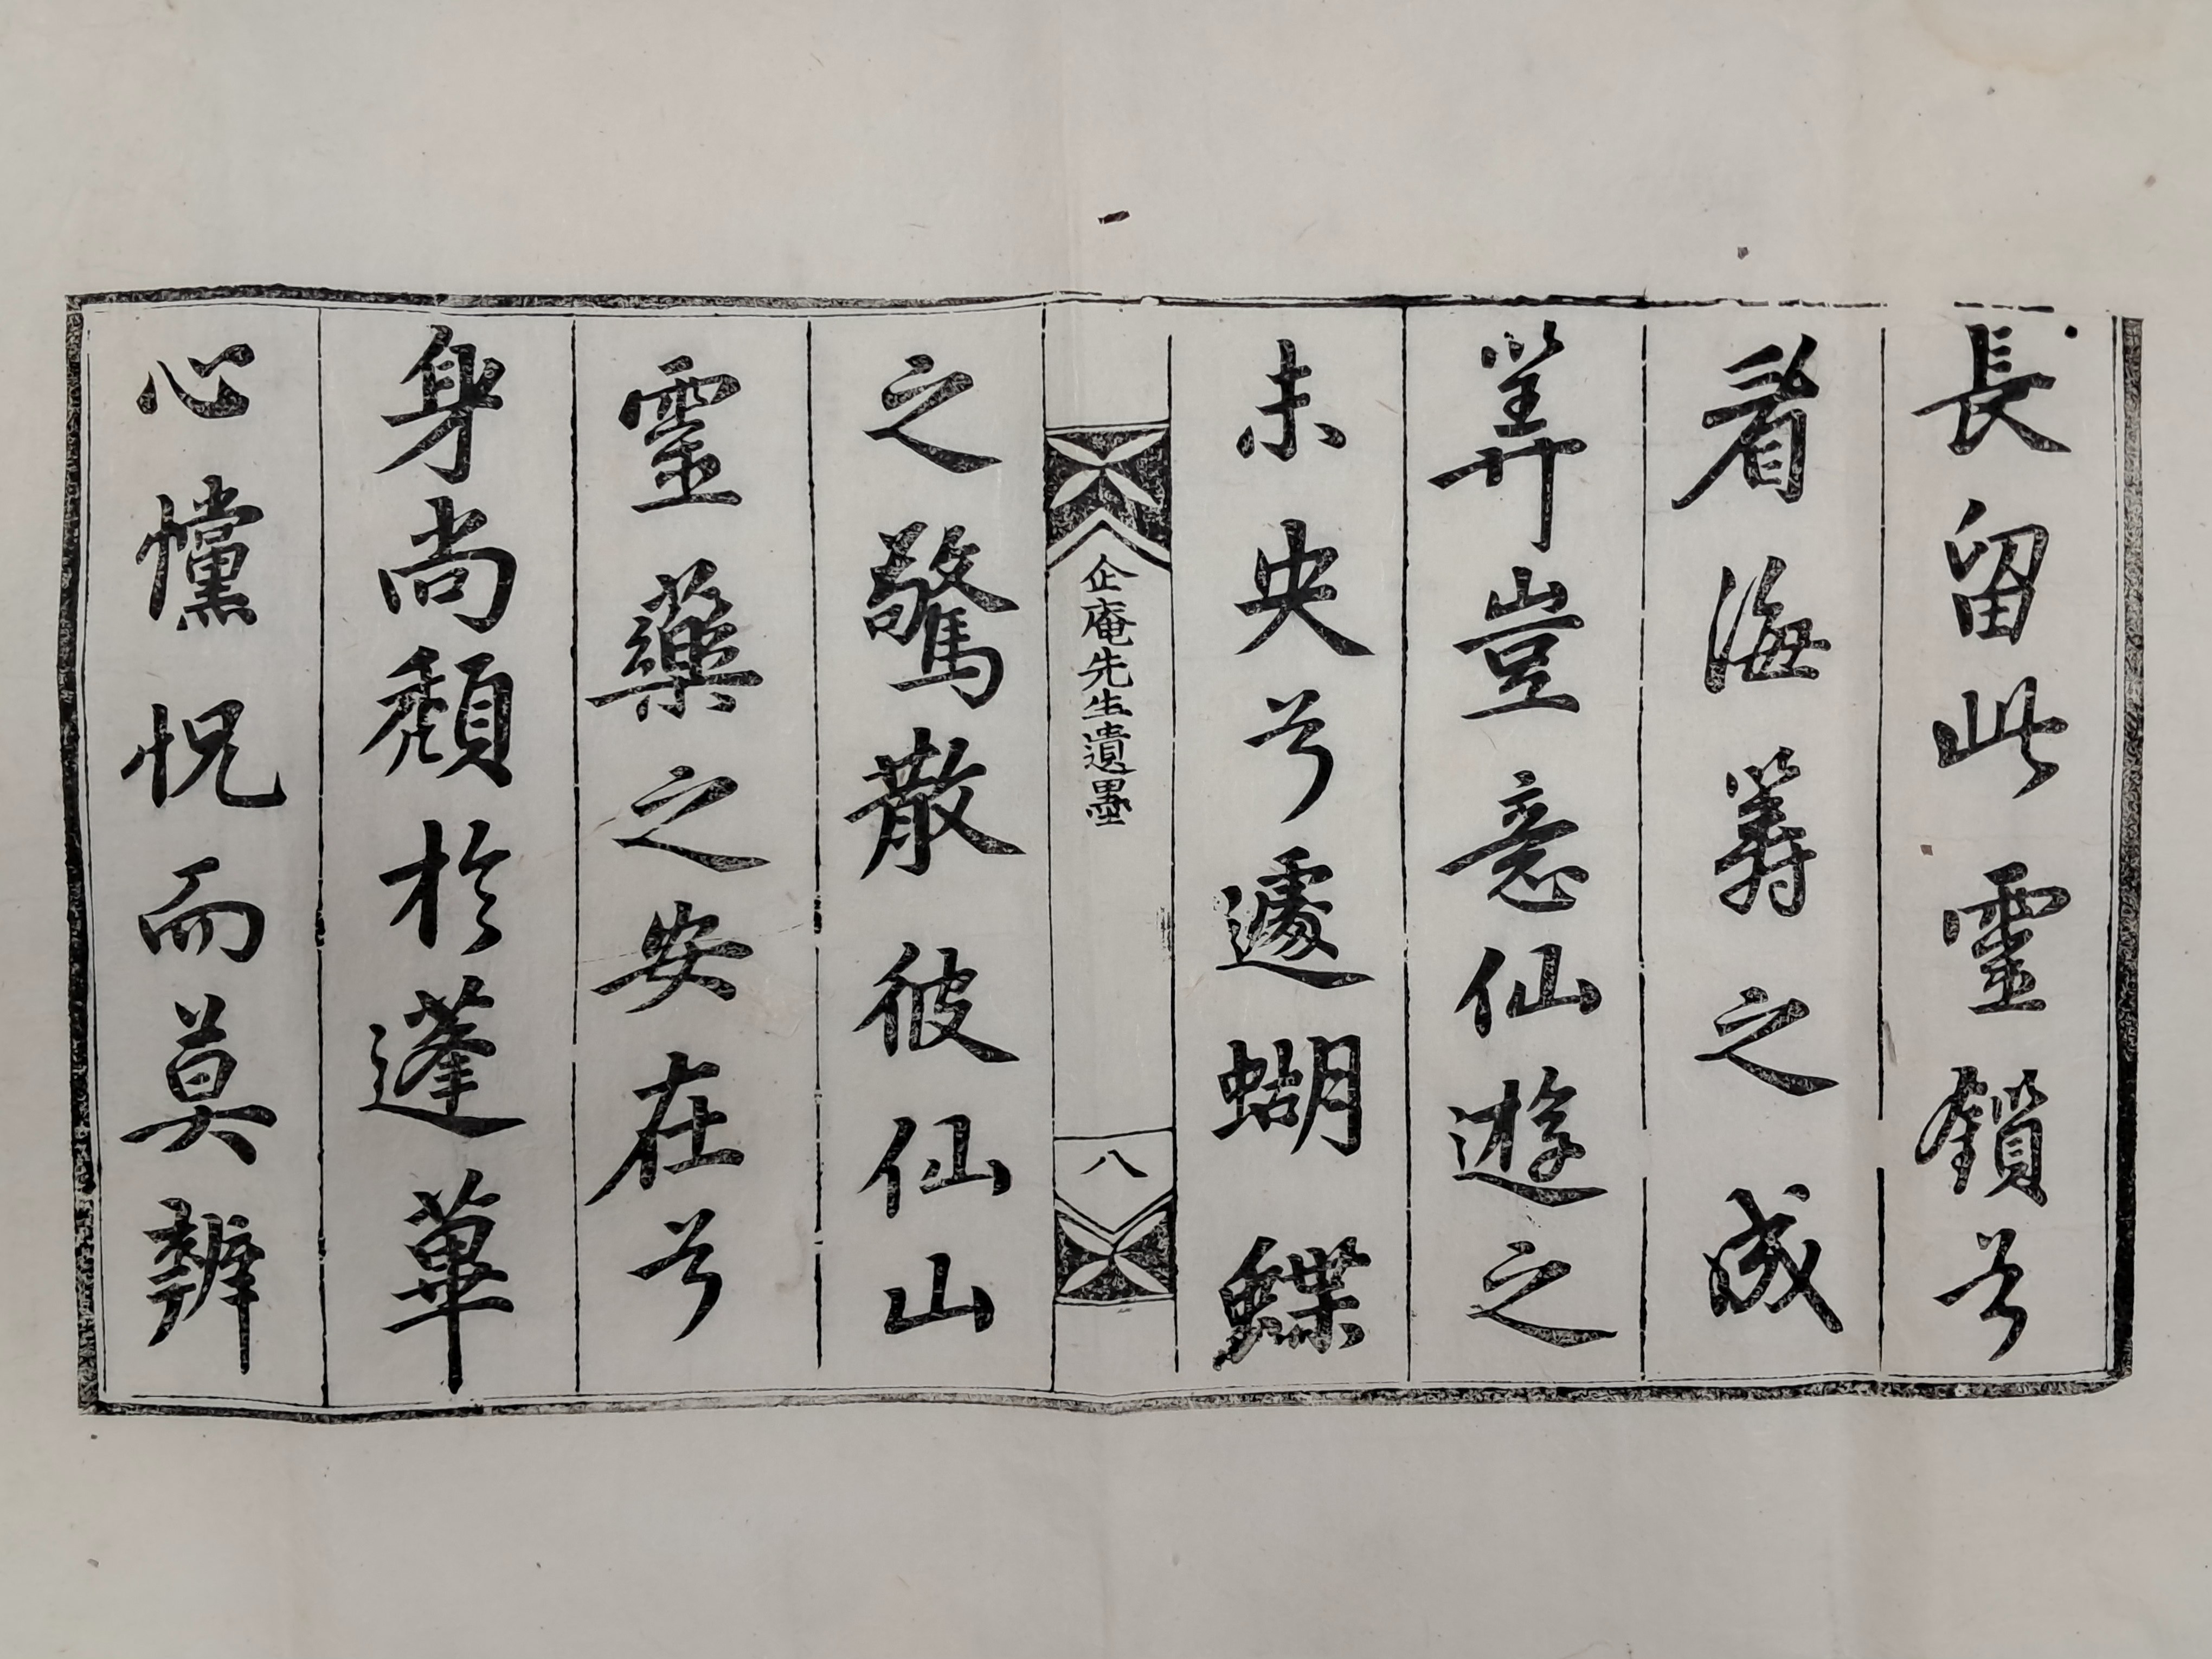 長留此靈鎖兮
看海籌之成
筭豈意仙遊之
未央兮遽蝴蝶
企庵先生遺墨
八
之驚散彼仙山
靈藥之安在兮
身尚頽於蓬蓽
心戃怳而莫辨